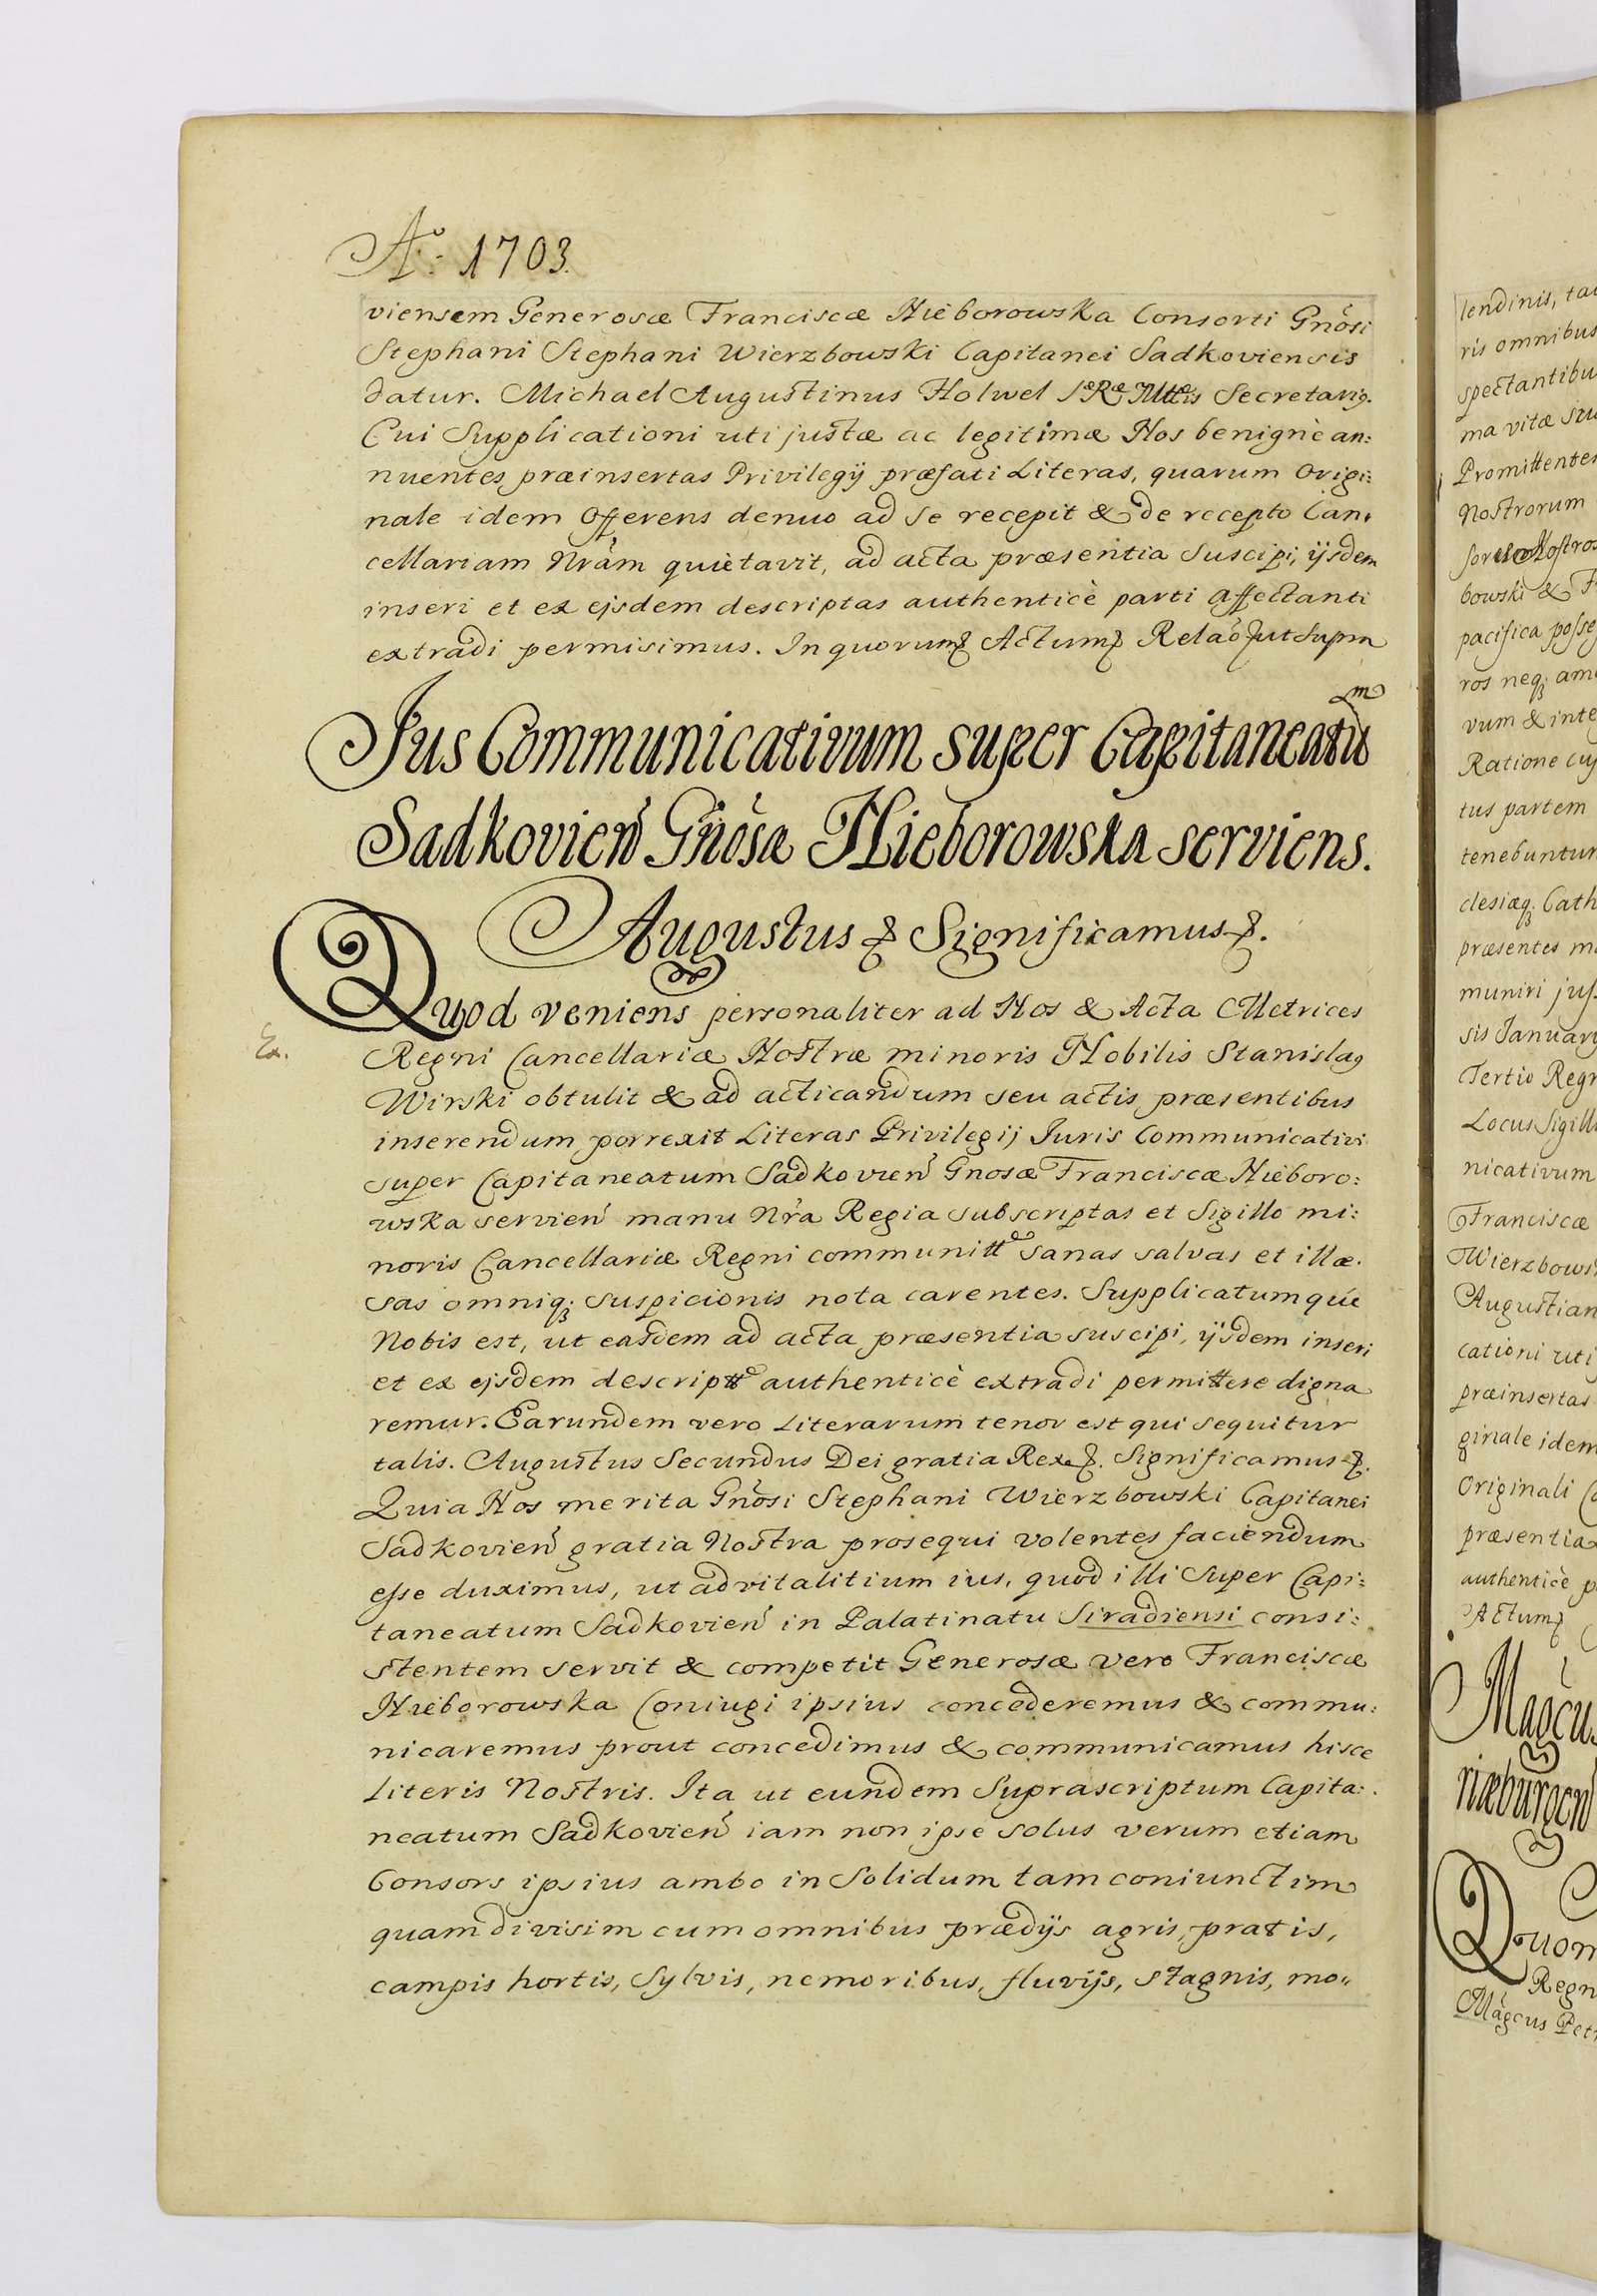 Aº: 1703.
viensem Generosæ Franciscæ Nieborowska Consorti Gnosi
Stephani Stephani Wierzbowski Capitanei Sadkoviensis
datur. Michael Augustinus Holwel Secretariq.
Cui Supplicationi uti justæ ac legitimæ Nos benignè an:
nuentes præinsertas Privilegij præfati Literas, quarum Origi:
nale idem Offerens denuo ad se recepit & de recepto Can:
cellariam Nrãm quietavit, ad acta præsentia suscipi, ijsdem
inseri et ex ejsdem descriptas authenticè parti affectanti
extradi permisimus. In quorum Actum Relaõ ut supra
Jus Communicativum super Capitaneatu m
Sadkovien Gnosæ Nieborowska serviens.
Augustus & Significamus &.
Quod veniens personaliter ad Nos & Acta Metrices
Ex.
Regni Cancellariæ Nostræ minoris Nobilis Stanislaq
Wirski obtulit & ad acticandum seu actis præsentibus
inserendum porrexit Literas Privilegij Juris Communicativi
super Capitaneatum Sadkovien Gnosæ Franciscæ Nieboro:
wska servien manu Nra Regia subscriptas et Sigillo mi:
noris Cancellariæ Regni communitt sanas salvas et illæ.
sas omniq; suspicionis nota carentes. Supplicatumque
Nobis est, ut easdem ad acta præsentia suscipi, ijsdem inseri
et ex ejsdem descriptt authenticè extradi permittere digna
remur. Earundem vero Literarum tenor est qui sequitur
talis. Augustus Secundus Dei gratia Rex &. Significamus &.
Quia Nos merita Gnosi Stephani Wierzbowski Capitanei
Sadkovien gratia Nostra prosequi volentes faciendum
esse duximus, ut advitalitium ius, quod illi Super Capi:
taneatum Sadkovien in Palatinatu Siradiensi consi:
stentem servit & competit Generosæ vero Franciscæ
Nieborowska Coniugi ipsius concederemus & commu:
nicaremus prout concedimus & communicamus hisce
Literis Nostris. Ita ut eundem Suprascriptum Capita:
neatum Sadkovien iam non ipse solus verum etiam
Consors ipsius ambo in Solidum tam coniunctim
quam divisim cum omnibus prædijs agris, pratis,
campis hortis, Sylvis, nemoribus, fluvijs, stagnis, mo"
lendinis, ta
ris omnibus
spectantibu
ma vitæ
Promittentes
Nostrorum
bowski & F
pacifica posse
ros neq; am
vum & inte
Ratione cuj
tus partem
tenebuntur
clesiæq; Cath
præsentes m
muniri jus
sis January
Tertio Regn
Locus Sigill
nicativum
Franciscæ
Wierzbows
Augustian
cationi uti
præinsertas
ginale idem
Originali Ca
præsentia
authenticè p
Actum
Magcus
riæburgen
Quon
Regn
Magcus Petr